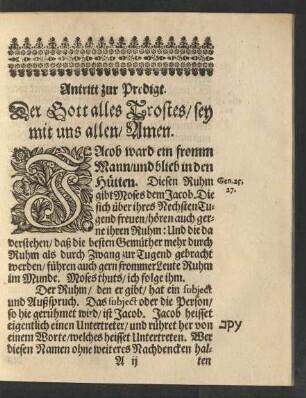 Antritt zur Predigt.
Der Gott alles Trostes/ sey
mit uns allen/ Amen.
JAcob ward ein fromm
Mann/ und blieb in den
Hütten. Diesen Ruhm
Gen. 25,
gibt Moses dem Jacob. Die
27.
sich über ihres Nechsten Tu-
gend freuen/ hören auch ger-
ne ihren Ruhm: Und die da
verstehen/ daß die besten Gemüther mehr durch
Ruhm als durch Zwang zur Tugend gebracht
werden/ führen auch gern frommer Leute Ruhm
im Munde. Moses thuts/ ich folge ihm.
Der Ruhm/ den er gibt/ hat ein subject
und Außspruch. Das subject oder die Person/
so hie gerühmet wird/ ist Jacob. Jacob heisset
eigentlich einen Untertreter/ und rühret her von
עקב
einem Worte/ welches heisset Untertreten. Wer
diesen Namen ohne weiteres Nachdencken hal-
A ij
ten